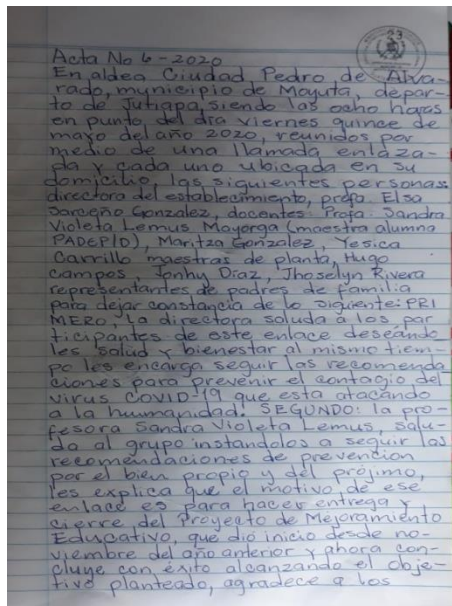 23
Acta No 6-2020
En aldea Ciudad Pedro de Alva-
rado, municipio de Moyuta, depar-
to de Jutiapa, siendo las ocho horas
en punto del día viernes quince de
mayo del año 2020, reunidos por
medio de una llamada enlaza-
da y cada uno ubicada en su
domicilio, las siguientes personas:
directora del establecimiento, profa. Elsa
Sarceño Gonzalez, docentes: Profa: Sandra
Violeta Lemus Mayorga (maestra alumna
PADEP/D), Maritza Gonzalez, Yesica
Carrillo maestras de planta, Hugo
Campos, Jonhy Diaz, Jhoselyn Rivera
representantes de padres de familia
para dejar constancia de lo siguiente: PRI
MERO, La directora saluda a los par
ticipantes de este enlace deseándo
les salud y bienestar al mismo tiem-
po les encarga seguir las recomenda
ciones para prevenir el contagio del
virus COVID-19 que esta atacando
a la huumanidad. SEGUNDO: la pro-
fesora Sandra Violeta Lemus, salu-
da al grupo instandolos a seguir las
recomendaciones de prevención
por el bien propio y del prójimo,
les explica que el motivo de ese
enlace es para hacer entrega y
cierre del Proyecto de Mejoramiento
Educativo, que dió inicio desde no-
viembre del año anterior y ahora con-
cluye con éxito alcanzando el obje-
tivo planteado, agradece a los